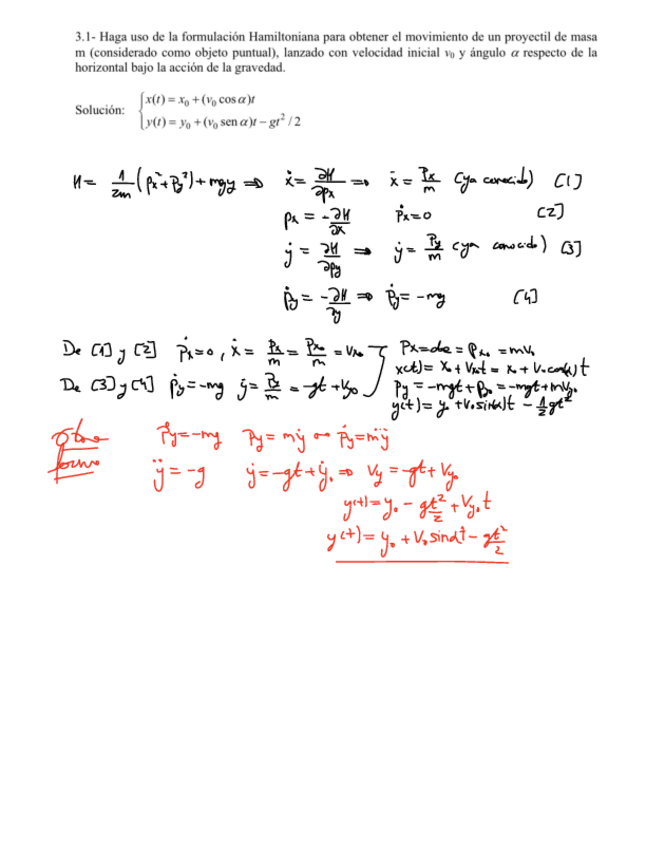 3.1- Haga uso de la formulación Hamiltoniana para obtener el movimiento de un proyectil de masa
m (considerado como objeto puntual), lanzado con velocidad inicial v₀ y ángulo α respecto de la
horizontal bajo la acción de la gravedad.
Solución: { x(t) = x₀ + (v₀ cos α)t
y(t) = y₀ + (v₀ sen α)t − gt² / 2
H = 1/2m (px² + py²) + mgy ⇒ ẋ = ∂H/∂px ⇒ ẋ = px/m (ya conocido) [1]
px = -∂H/∂x ṗx = 0 [2]
ẏ = ∂H/∂py ⇒ ẏ = py/m (ya conocido) [3]
ṗy = -∂H/∂y ⇒ ṗy = -mg [4]
De [1] y [2] ṗx = 0, ẋ = px/m = px₀/m = vx₀ px = cte = px₀ = mv₀
x(t) = x₀ + vx₀t = x₀ + v₀cos(α)t
De [3] y [4] ṗy = -mg ẏ = py/m = -gt + vy₀ py = -mgt + p₀ = -mgt + mvy₀
y(t) = y₀ + v₀sin(α)t - 1/2 gt²
Otra
forma
ṗy = -mg py = mẏ → ṗy = mÿ
ÿ = -g ẏ = -gt + ẏ₀ ⇒ vy = -gt + vy₀
y(t) = y₀ - gt²/2 + vy₀t
y(t) = y₀ + v₀ sinαt - gt²/2